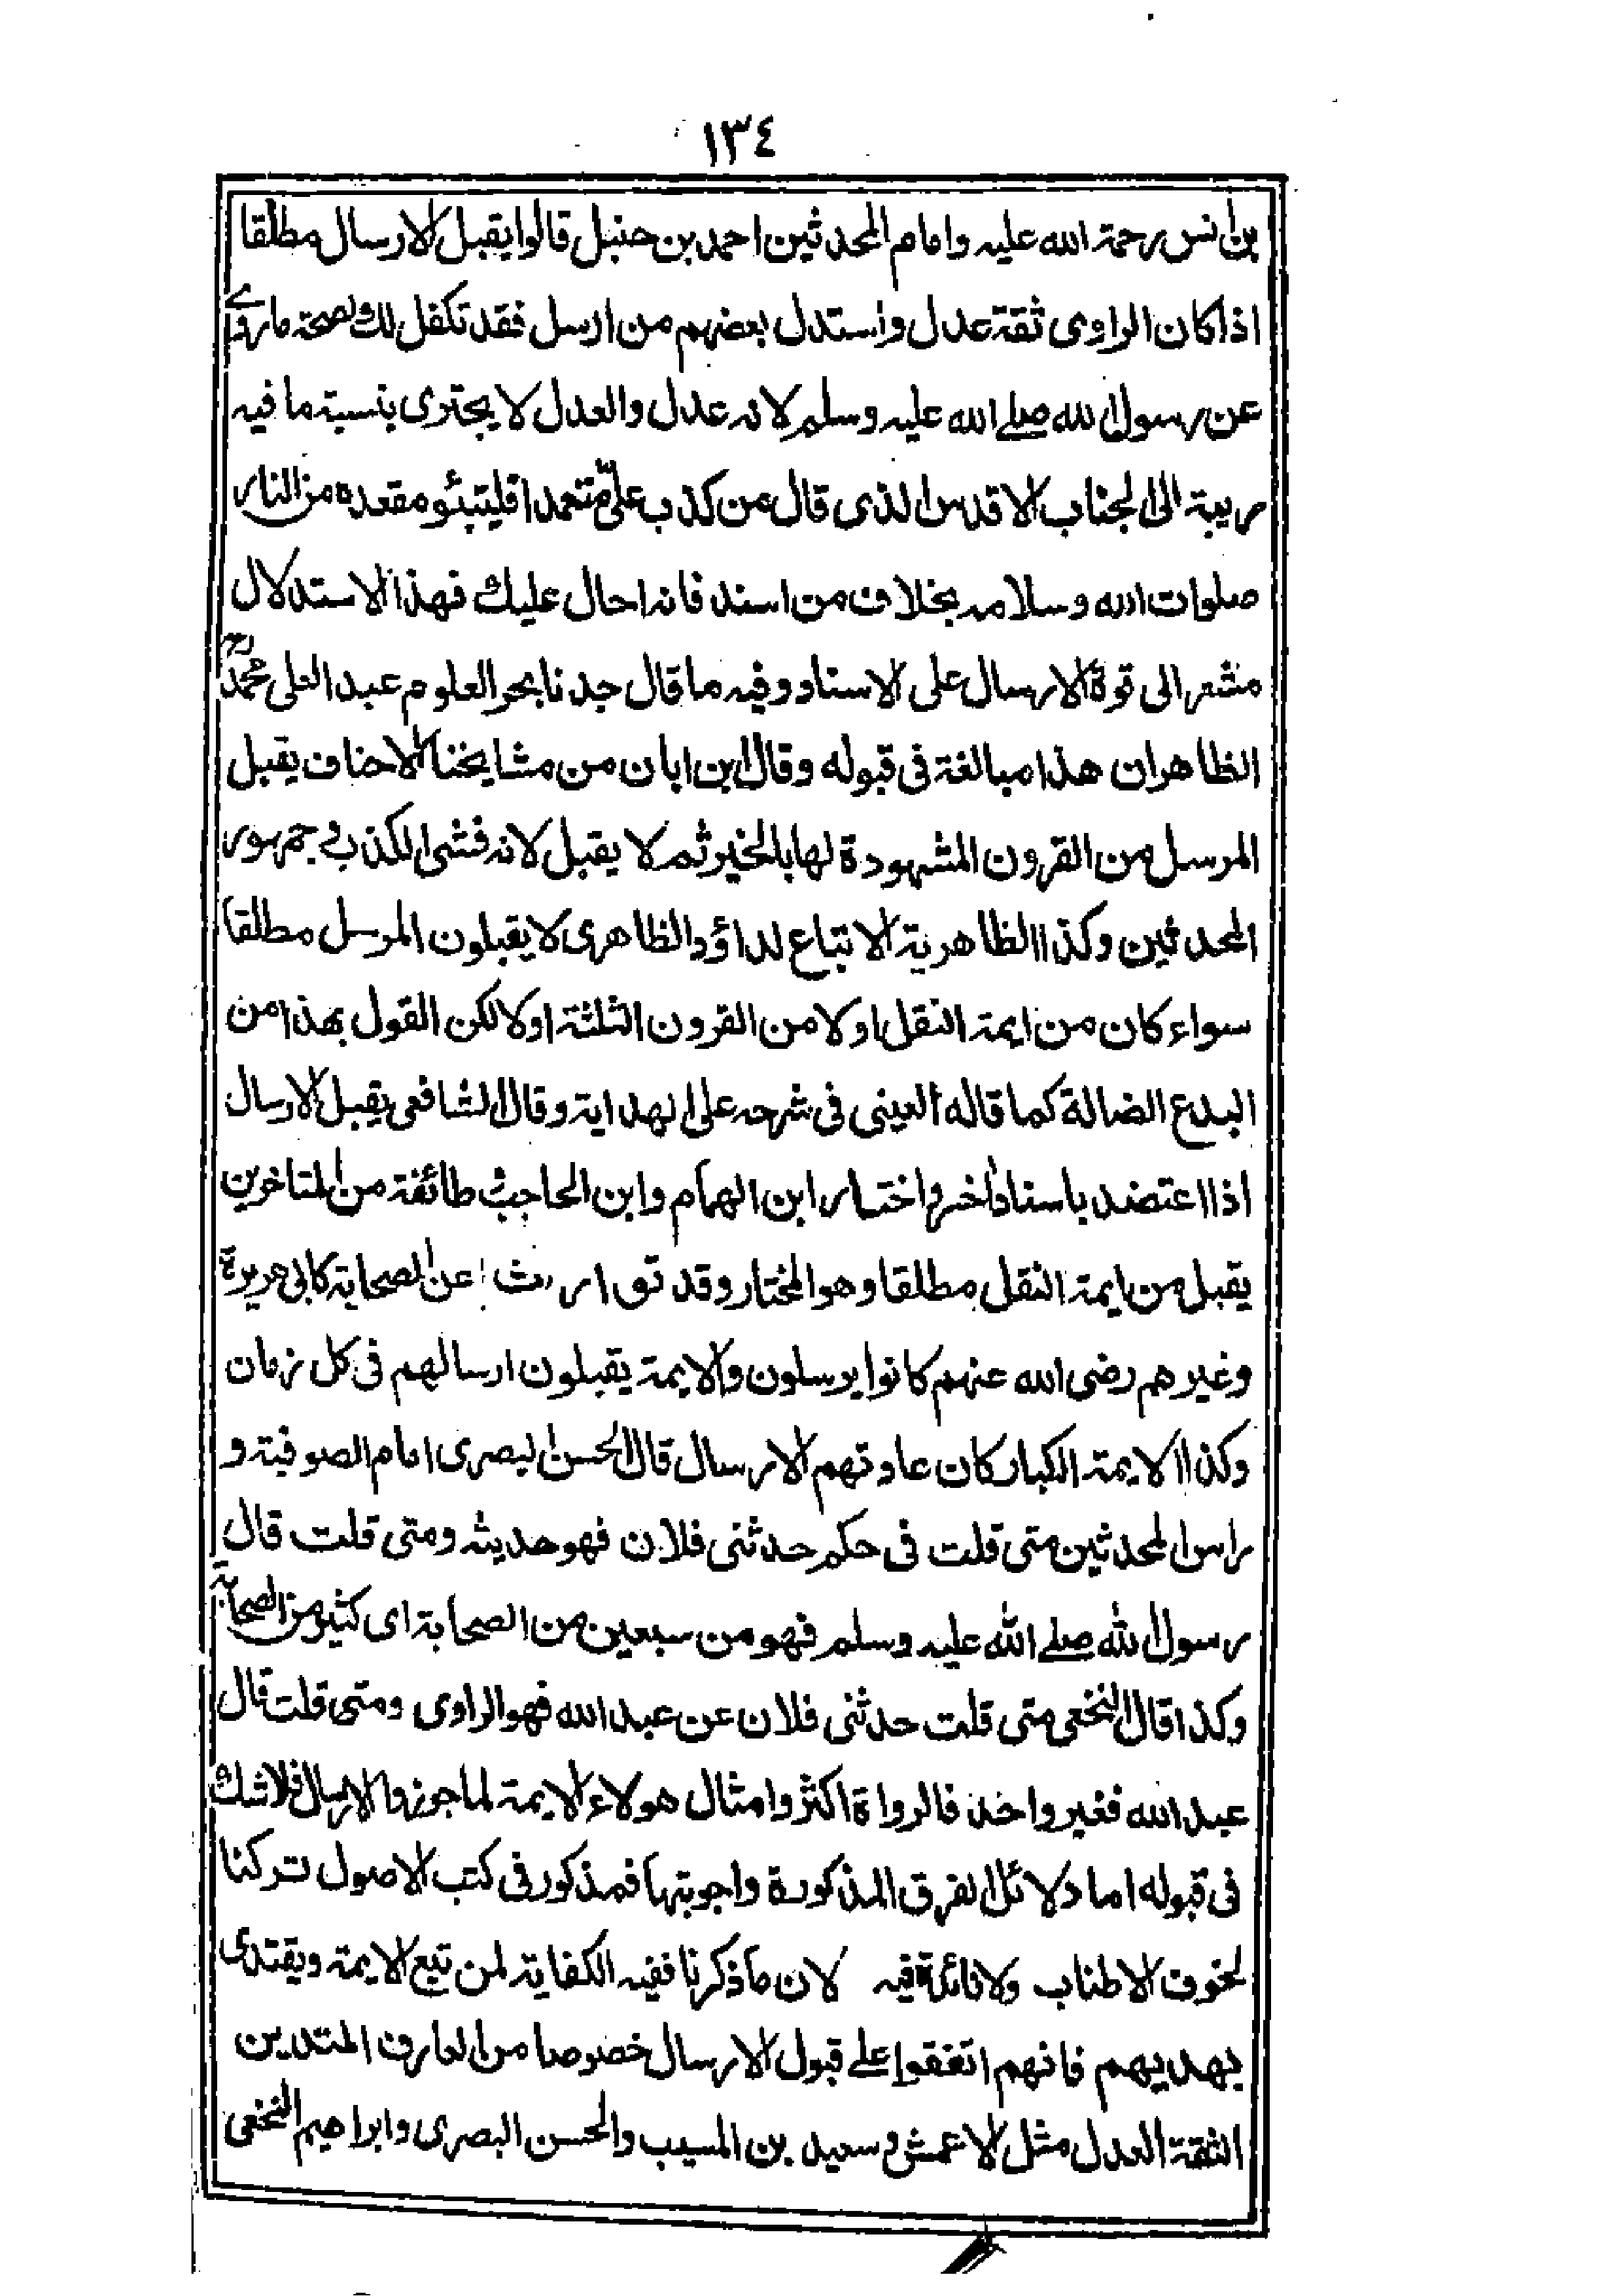 ١٣٤
بن انس رحمة الله عليه وامام المحدثين احمد بن حنبل قالوا يقبل الارسال مطلقا
اذا كان الراوى ثقة عدل واستدل بعضهم من ارسل فقد تكفل لك بصحة ما روے
عن رسول الله صلے الله عليه وسلم لانه عدل والعدل لا يجترى بنسبة ما فيه
ريبة الى الجناب الاقدس الذى قال من كذب علىّ متعمدا فليتبئو مقعده من النار
صلوات الله وسلامه بخلاف من اسند فانه احال عليك فهذا الاستدلال
مشعر الى قوة الارسال على الاسناد وفيه ما قال جدنا بحر العلوم عبد العلى محمد رح
الظاهر ان هذا مبالغة فى قبوله وقال ابن ابان من مشايخنا الاحناف يقبل
المرسل من القرون المشهودة لها بالخير ثم لا يقبل لانه فشى الكذب فے جمهور
المحدثين وكذا الظاهرية الاتباع لداؤد الظاهرى لا يقبلون المرسل مطلقا
سواء كان من ايمة النقل او لا من القرون الثلثة او لا لكن القول بهذا من
البدع الضالة كما قاله العينى فى شرحه على الهداية وقال الشافعى يقبل الارسال
اذا اعتضد باسناد اخر واختار ابن الهمام وابن الحاجب طائفة من المتاخرين
يقبل من ايمة النقل مطلقا وهو المختار وقد تو ارث عن الصحابة كابى هريرة
وغيرهم رضى الله عنهم كانوا يرسلون والايمة يقبلون ارسالهم فى كل زمان
وكذا الايمة الكبار كان عادتهم الارسال قال الحسن البصرى امام الصوفية و
راس المحدثين متى قلت فى حكم حدثنى فلان فهو حديثه ومتى قلت قال
رسول الله صلے الله عليه وسلم فهو من سبعين من الصحابة اى كثير من الصحابة
وكذا قال النخعى متى قلت حدثنى فلان عن عبد الله فهو الراوى ومتى قلت قال
عبد الله فغير واحد فالرواة اكثر وامثال هولاء الايمة لما جوزوا الارسال فلا شك
فى قبوله اما دلائل الفرق المذكورة واجوبتها فمذكور فى كتب الاصول تركنا
لخوف الاطناب ولا فائدة فيه لان ما ذكرنا ففيه الكفاية لمن تبع الايمة ويقتدى
بهديهم فانهم اتفقوا علے قبول الارسال خصوصا من العارف المتدين
الثقة العدل مثل الاعمش وسعيد بن المسيب والحسن البصرى وابراهيم النخعى